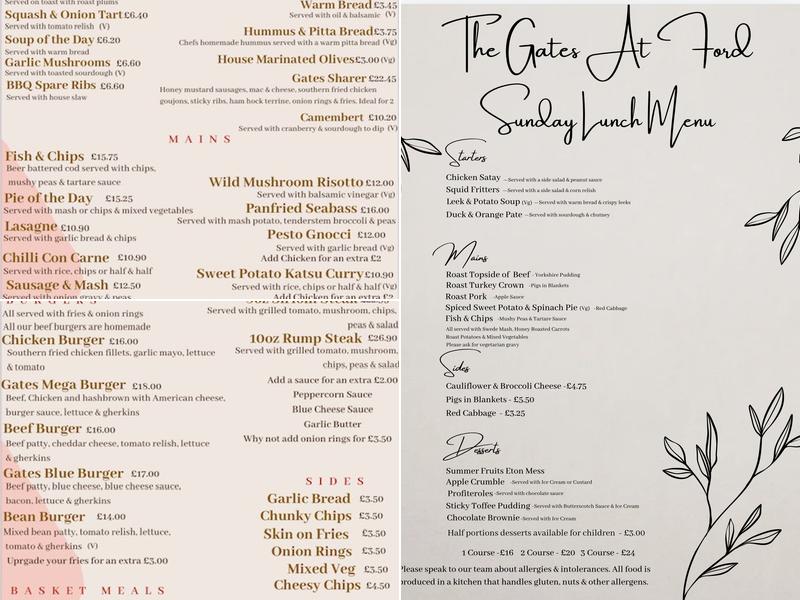 Served on toast with roast plums
Squash & Onion Tart £6.40
Served with tomato relish (V)
Soup of the Day £6.20
Served with warm bread
Garlic Mushrooms £6.60
Served with toasted sourdough (V)
BBQ Spare Ribs £6.60
Served with house slaw
Warm Bread £3.45
Served with oil & balsamic (V)
Hummus & Pitta Bread £3.75
Chefs homemade hummus served with a warm pitta bread (Vg)
House Marinated Olives £3.00 (Vg)
Gates Sharer £22.45
Honey mustard sausages, mac & cheese, southern fried chicken
goujons, sticky ribs, ham hock terrine, onion rings & fries. Ideal for 2
Camembert £10.20
Served with cranberry & sourdough to dip (V)
MAINS
Fish & Chips £15.75
Beer battered cod served with chips,
mushy peas & tartare sauce
Pie of the Day £15.25
Served with mash or chips & mixed vegetables
Lasagne £10.90
Served with garlic bread & chips
Chilli Con Carne £10.90
Served with rice, chips or half & half
Sausage & Mash £12.50
Served with onion gravy & peas
Wild Mushroom Risotto £12.00
Served with balsamic vinegar (Vg)
Panfried Seabass £16.00
Served with mash potato, tenderstem broccoli & peas
Pesto Gnocci £12.00
Served with garlic bread (Vg)
Add Chicken for an extra £2
Sweet Potato Katsu Curry £10.90
Served with rice, chips or half & half (Vg)
Add Chicken for an extra £2
BURGERS
All served with fries & onion rings
All our beef burgers are homemade
Chicken Burger £16.00
Southern fried chicken fillets, garlic mayo, lettuce
& tomato
Gates Mega Burger £18.00
Beef, Chicken and hashbrown with American cheese,
burger sauce, lettuce & gherkins
Beef Burger £16.00
Beef patty, cheddar cheese, tomato relish, lettuce
& gherkins
Gates Blue Burger £17.00
Beef patty, blue cheese, blue cheese sauce,
bacon, lettuce & gherkins
Bean Burger £14.00
Mixed bean patty, tomato relish, lettuce,
tomato & gherkins (V)
Uprgade your fries for an extra £3.00
BASKET MEALS
Served with grilled tomato, mushroom, chips,
peas & salad
10oz Rump Steak £26.90
Served with grilled tomato, mushroom,
chips, peas & salad
Add a sauce for an extra £2.00
Peppercorn Sauce
Blue Cheese Sauce
Garlic Butter
Why not add onion rings for £3.50
SIDES
Garlic Bread £3.50
Chunky Chips £3.50
Skin on Fries £3.50
Onion Rings £3.50
Mixed Veg £3.50
Cheesy Chips £4.50
The Gates At Ford
Sunday Lunch Menu
Starters
Chicken Satay - Served with a side salad & peanut sauce
Squid Fritters - Served with a side salad & corn relish
Leek & Potato Soup (Vg) - Served with warm bread & crispy leeks
Duck & Orange Pate - Served with sourdough & chutney
Mains
Roast Topside of Beef - Yorkshire Pudding
Roast Turkey Crown - Pigs in Blankets
Roast Pork - Apple Sauce
Spiced Sweet Potato & Spinach Pie (Vg) - Red Cabbage
Fish & Chips - Mushy Peas & Tartare Sauce
All served with Swede Mash, Honey Roasted Carrots
Roast Potatoes & Mixed Vegetables
Please ask for vegetarian gravy
Sides
Cauliflower & Broccoli Cheese -£4.75
Pigs in Blankets - £5.50
Red Cabbage - £3.25
Desserts
Summer Fruits Eton Mess
Apple Crumble -Served with Ice Cream or Custard
Profiteroles -Served with chocolate sauce
Sticky Toffee Pudding -Served with Butterscotch Sauce & Ice Cream
Chocolate Brownie -Served with Ice Cream
Half portions desserts available for children - £3.00
1 Course -£16 2 Course - £20 3 Course - £24
Please speak to our team about allergies & intolerances. All food is
produced in a kitchen that handles gluten, nuts & other allergens.